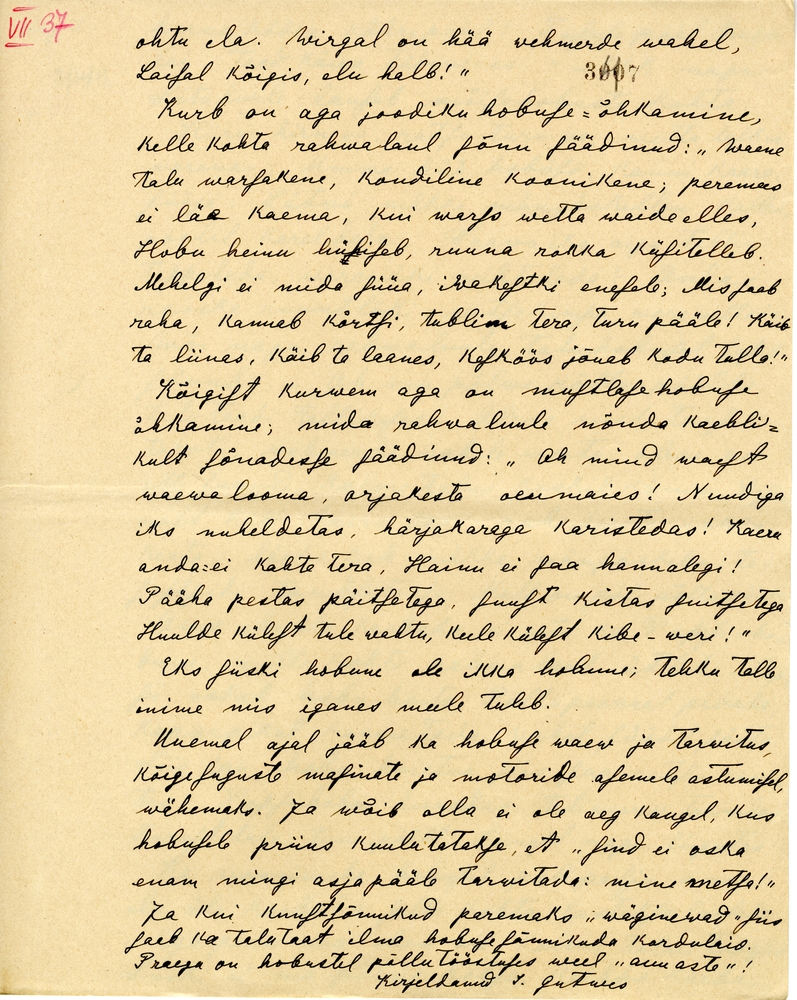 VII 37
ohtu ela. Wirgal on hää wehmerde wahel,
Laisal kõigis, elu halb!"
3007
Kurb on aga joodiku hobuse=õhkamine,
kelle kohta rahwalaul sõnu säädinud: „Waene
talu warsakene, kondiline koonikene; peremees
ei lää kaema, kui warss wetta waideelles,
Hobu heinu hüsiseb, ruuna rokka küsitelleb.
Mehelgi ei mida süüa, iwakestki enesele; Mis saab
raha, kannab kõrtsi, tublim tera, turu pääle! Käib
ta liinas, käib ta laanes, keskköös jõuab kodu tulla!"
Kõigist kurwem aga on mustlase hobuse
õhkamine; mida rahwaluule nõnda kaebli=
kult sõnadesse säädinud: „Oh mind waest
waewalooma, orjakesta oenmaies! Nuudiga
iks nuheldetas, härjakaraga karistedas! Kaeru
anda=ei kahte tera, Hainu ei saa hannalegi!
Pääha pestas päitsetega, suust kistas suitsetega
Huulde külest tule wahtu, keele külest kibe-weri!"
Eks siiski hobune ole ikka hobune; tehku talle
inime mis iganes meele tuleb.
Uuemal ajal jääb ka hobuse waew ja tarwitus,
kõigesuguste masinate ja motoride asemele astumisel,
wähemaks. Ja wõib olla ei ole aeg kaugel, kus
hobusele priius kuulutatakse, et „sind ei oska
enam mingi asja pääle tarwitada: mine metsa!"
Ja kui kunstsõnnikud paremaks „wäginewad" siis
saab ka talutaat ilma hobusesõnnikuda kordulais.
Praega on hobustel põllutööstuses weel „auu aste"!
Kirjeldanud J.